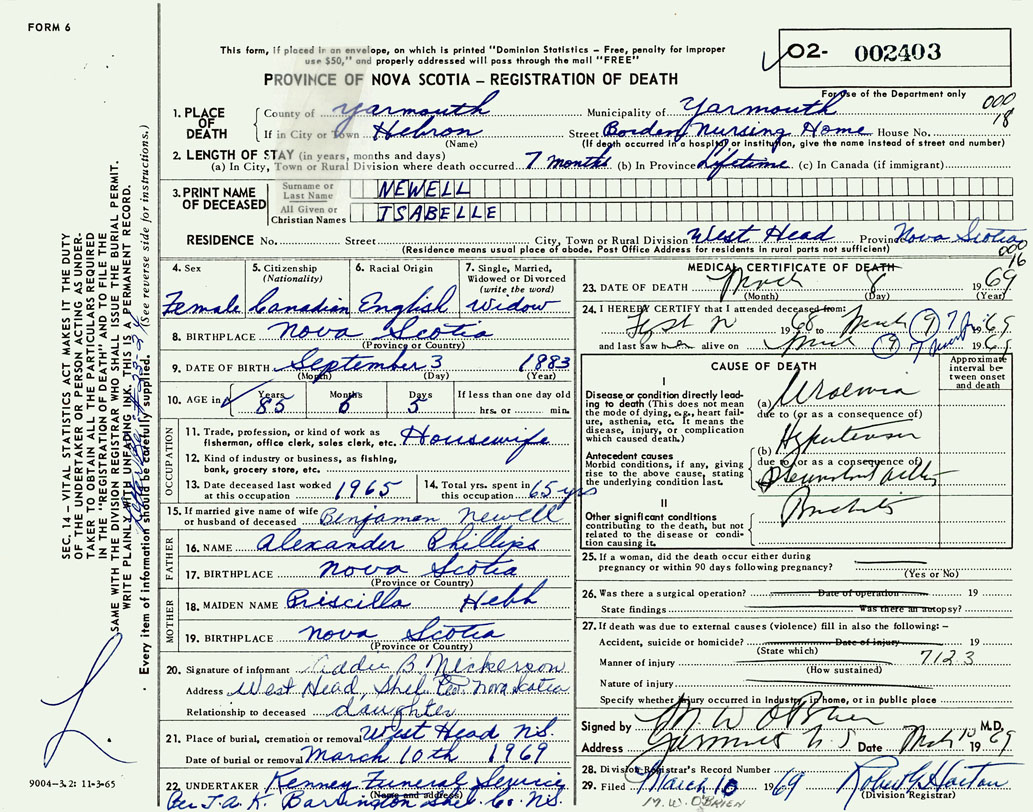 FORM 6
This form, if placed in an envelope, on which is printed "Dominion Statistics – Free, penalty for improper
use $50," and properly addressed will pass through the mail "FREE"
PROVINCE OF NOVA SCOTIA – REGISTRATION OF DEATH
02- 002403
For Use of the Department only
000
18
1. PLACE OF DEATH
County of Yarmouth Municipality of Yarmouth
If in City or Town Hebron Street Borden Nursing Home House No.
(Name) (If death occurred in a hospital or institution, give the name instead of street and number)
2. LENGTH OF STAY (in years, months and days)
(a) In City, Town or Rural Division where death occurred 7 months (b) In Province Lifetime (c) In Canada (if immigrant)
3. PRINT NAME OF DECEASED
Surname or Last Name NEWELL
All Given or Christian Names ISABELLE
RESIDENCE No. Street City, Town or Rural Division West Head Province Nova Scotia
(Residence means usual place of abode. Post Office Address for residents in rural parts not sufficient)
000
16
4. Sex 5. Citizenship (Nationality) 6. Racial Origin 7. Single, Married, Widowed or Divorced (write the word)
Female Canadian English Widow
8. BIRTHPLACE Nova Scotia
(Province or Country)
9. DATE OF BIRTH September 3 1883
(Month) (Day) (Year)
10. AGE in Years Months Days If less than one day old
85 6 5 hrs. or min.
OCCUPATION
11. Trade, profession, or kind of work as fisherman, office clerk, sales clerk, etc. Housewife
12. Kind of industry or business, as fishing, bank, grocery store, etc.
13. Date deceased last worked at this occupation 1965 14. Total yrs. spent in this occupation 65 yrs
15. If married give name of wife or husband of deceased Benjamen Newell
FATHER
16. NAME Alexander Phillips
17. BIRTHPLACE Nova Scotia
(Province or Country)
MOTHER
18. MAIDEN NAME Priscilla Hebb
19. BIRTHPLACE Nova Scotia
(Province or Country)
20. Signature of informant Addie B. Nickerson
Address West Head, Shel. Co. Nova Scotia
Relationship to deceased daughter
21. Place of burial, cremation or removal West Head N.S.
Date of burial or removal March 10th 1969
22. UNDERTAKER Kenney Funeral Service
(Name and address)
Per J.A.K. Barrington Shel. Co. N.S.
MEDICAL CERTIFICATE OF DEATH
23. DATE OF DEATH March 8 1969
(Month) (Day) (Year)
24. I HEREBY CERTIFY that I attended deceased from:
Sept 1968 to March 1969
and last saw her alive on
CAUSE OF DEATH
Approximate interval between onset and death
I
Disease or condition directly leading to death (This does not mean the mode of dying, e.g., heart failure, asthenia, etc. It means the disease, injury, or complication which caused death.)
(a) Uraemia
due to (or as a consequence of)
Antecedent causes
Morbid conditions, if any, giving rise to the above cause, stating the underlying condition last.
(b) Hypertension
due to (or as a consequence of)
II
Other significant conditions contributing to the death, but not related to the disease or condition causing it.
25. If a woman, did the death occur either during pregnancy or within 90 days following pregnancy?
(Yes or No)
26. Was there a surgical operation? Date of operation 19
State findings Was there an autopsy?
27. If death was due to external causes (violence) fill in also the following: –
Accident, suicide or homicide? Date of injury 19
(State which)
Manner of injury 7123
(How sustained)
Nature of injury
Specify whether injury occurred in industry, in home, or in public place
Signed by M. W. O'Brien M.D.
Address Yarmouth N.S. Date Mch 10 1969
28. Division Registrar's Record Number
29. Filed March 10 1969
(Division Registrar)
M. W. O'BRIEN
SEC. 14 – VITAL STATISTICS ACT MAKES IT THE DUTY
OF THE UNDERTAKER OR PERSON ACTING AS UNDER-
TAKER TO OBTAIN ALL THE PARTICULARS REQUIRED
IN THE "REGISTRATION OF DEATH" AND TO FILE THE
SAME WITH THE DIVISION REGISTRAR WHO SHALL ISSUE THE BURIAL PERMIT.
WRITE PLAINLY WITH UNFADING INK. THIS IS A PERMANENT RECORD.
Every item of information should be carefully supplied. (See reverse side for instructions.)
9004-3.2: 11-3-65